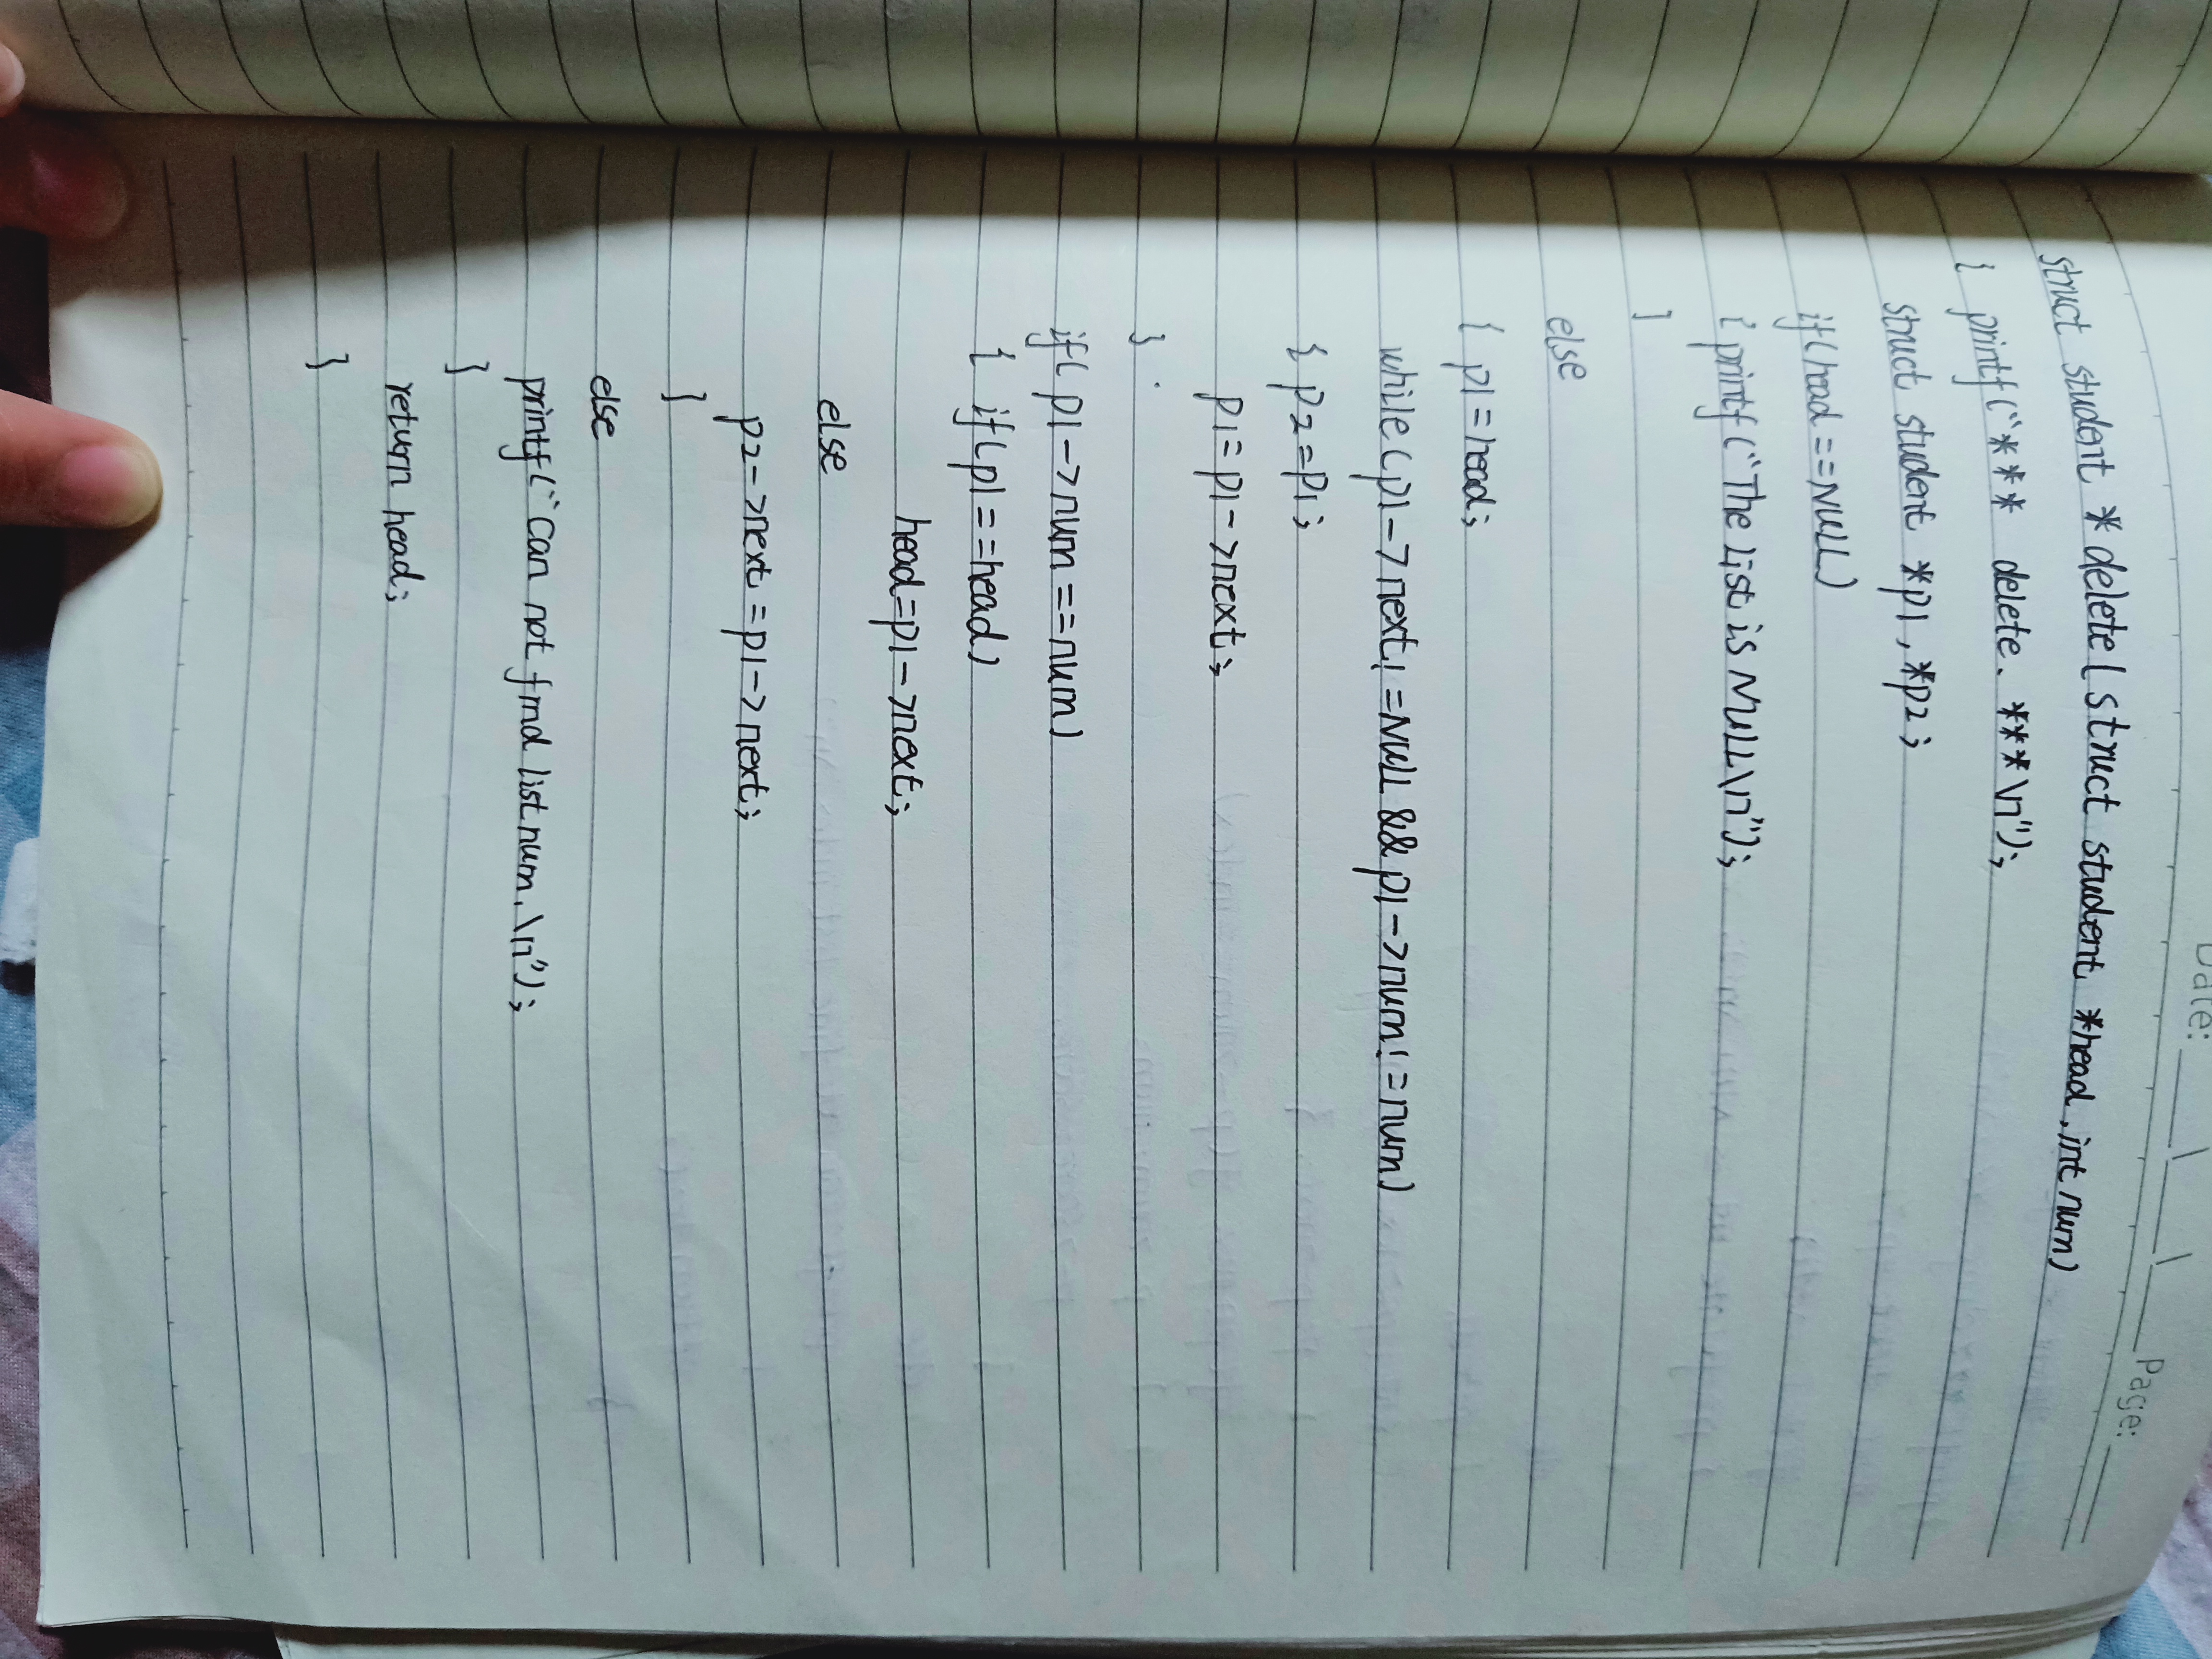 Date: Page:
struct student *delete(struct student *head,int num)
{ printf("*** delete. ***\n");
struct student *p1,*p2;
if(head==NULL)
{ printf("The List is NULL\n");
}
else
{ p1=head;
while(p1->next!=NULL&&p1->num!=num)
{ p2=p1;
p1=p1->next;
}
if(p1->num==num)
{ if(p1==head)
head=p1->next;
else
p2->next=p1->next;
}
else
printf("Can not find list num.\n");
}
return head;
}